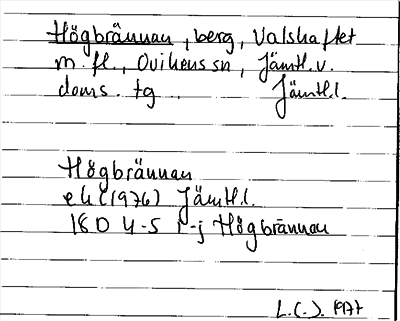 Högbrännan, berg, Valshaftet
m. fl., Ovikens sn, Jämtl. v.
doms. tg. Jämtl. l.
Högbrännan
ek (1976) Jämtl. l.
18D 4-5 i-j Högbrännan
L.(.). 1977